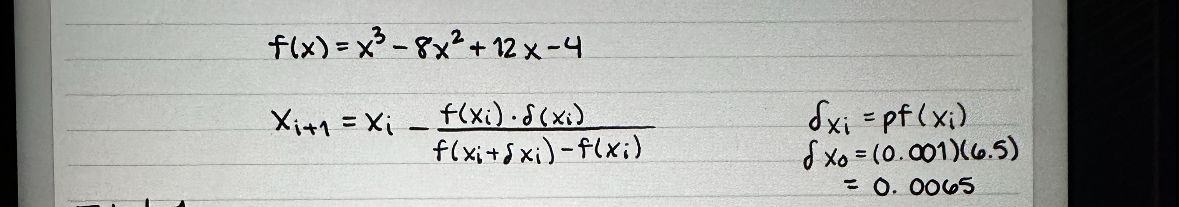 f(x) = x³ - 8x² + 12x - 4
x_{i+1} = x_i - \frac{f(x_i) \cdot δ(x_i)}{f(x_i + δx_i) - f(x_i)}
δx_i = pf(x_i)
δx₀ = (0.001)(6.5)
= 0.0065